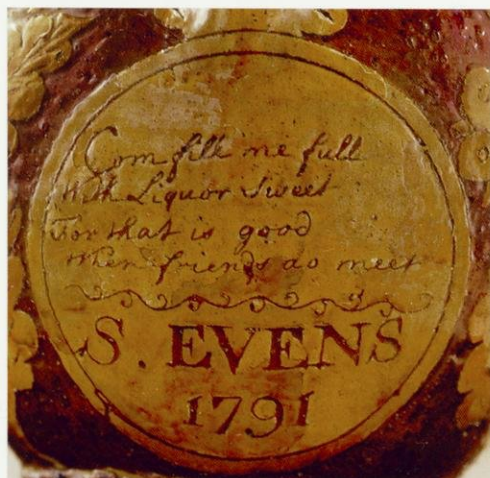 Com fill me full
With Liquor Sweet
For that is good
When friends do meet
S. EVENS
1791